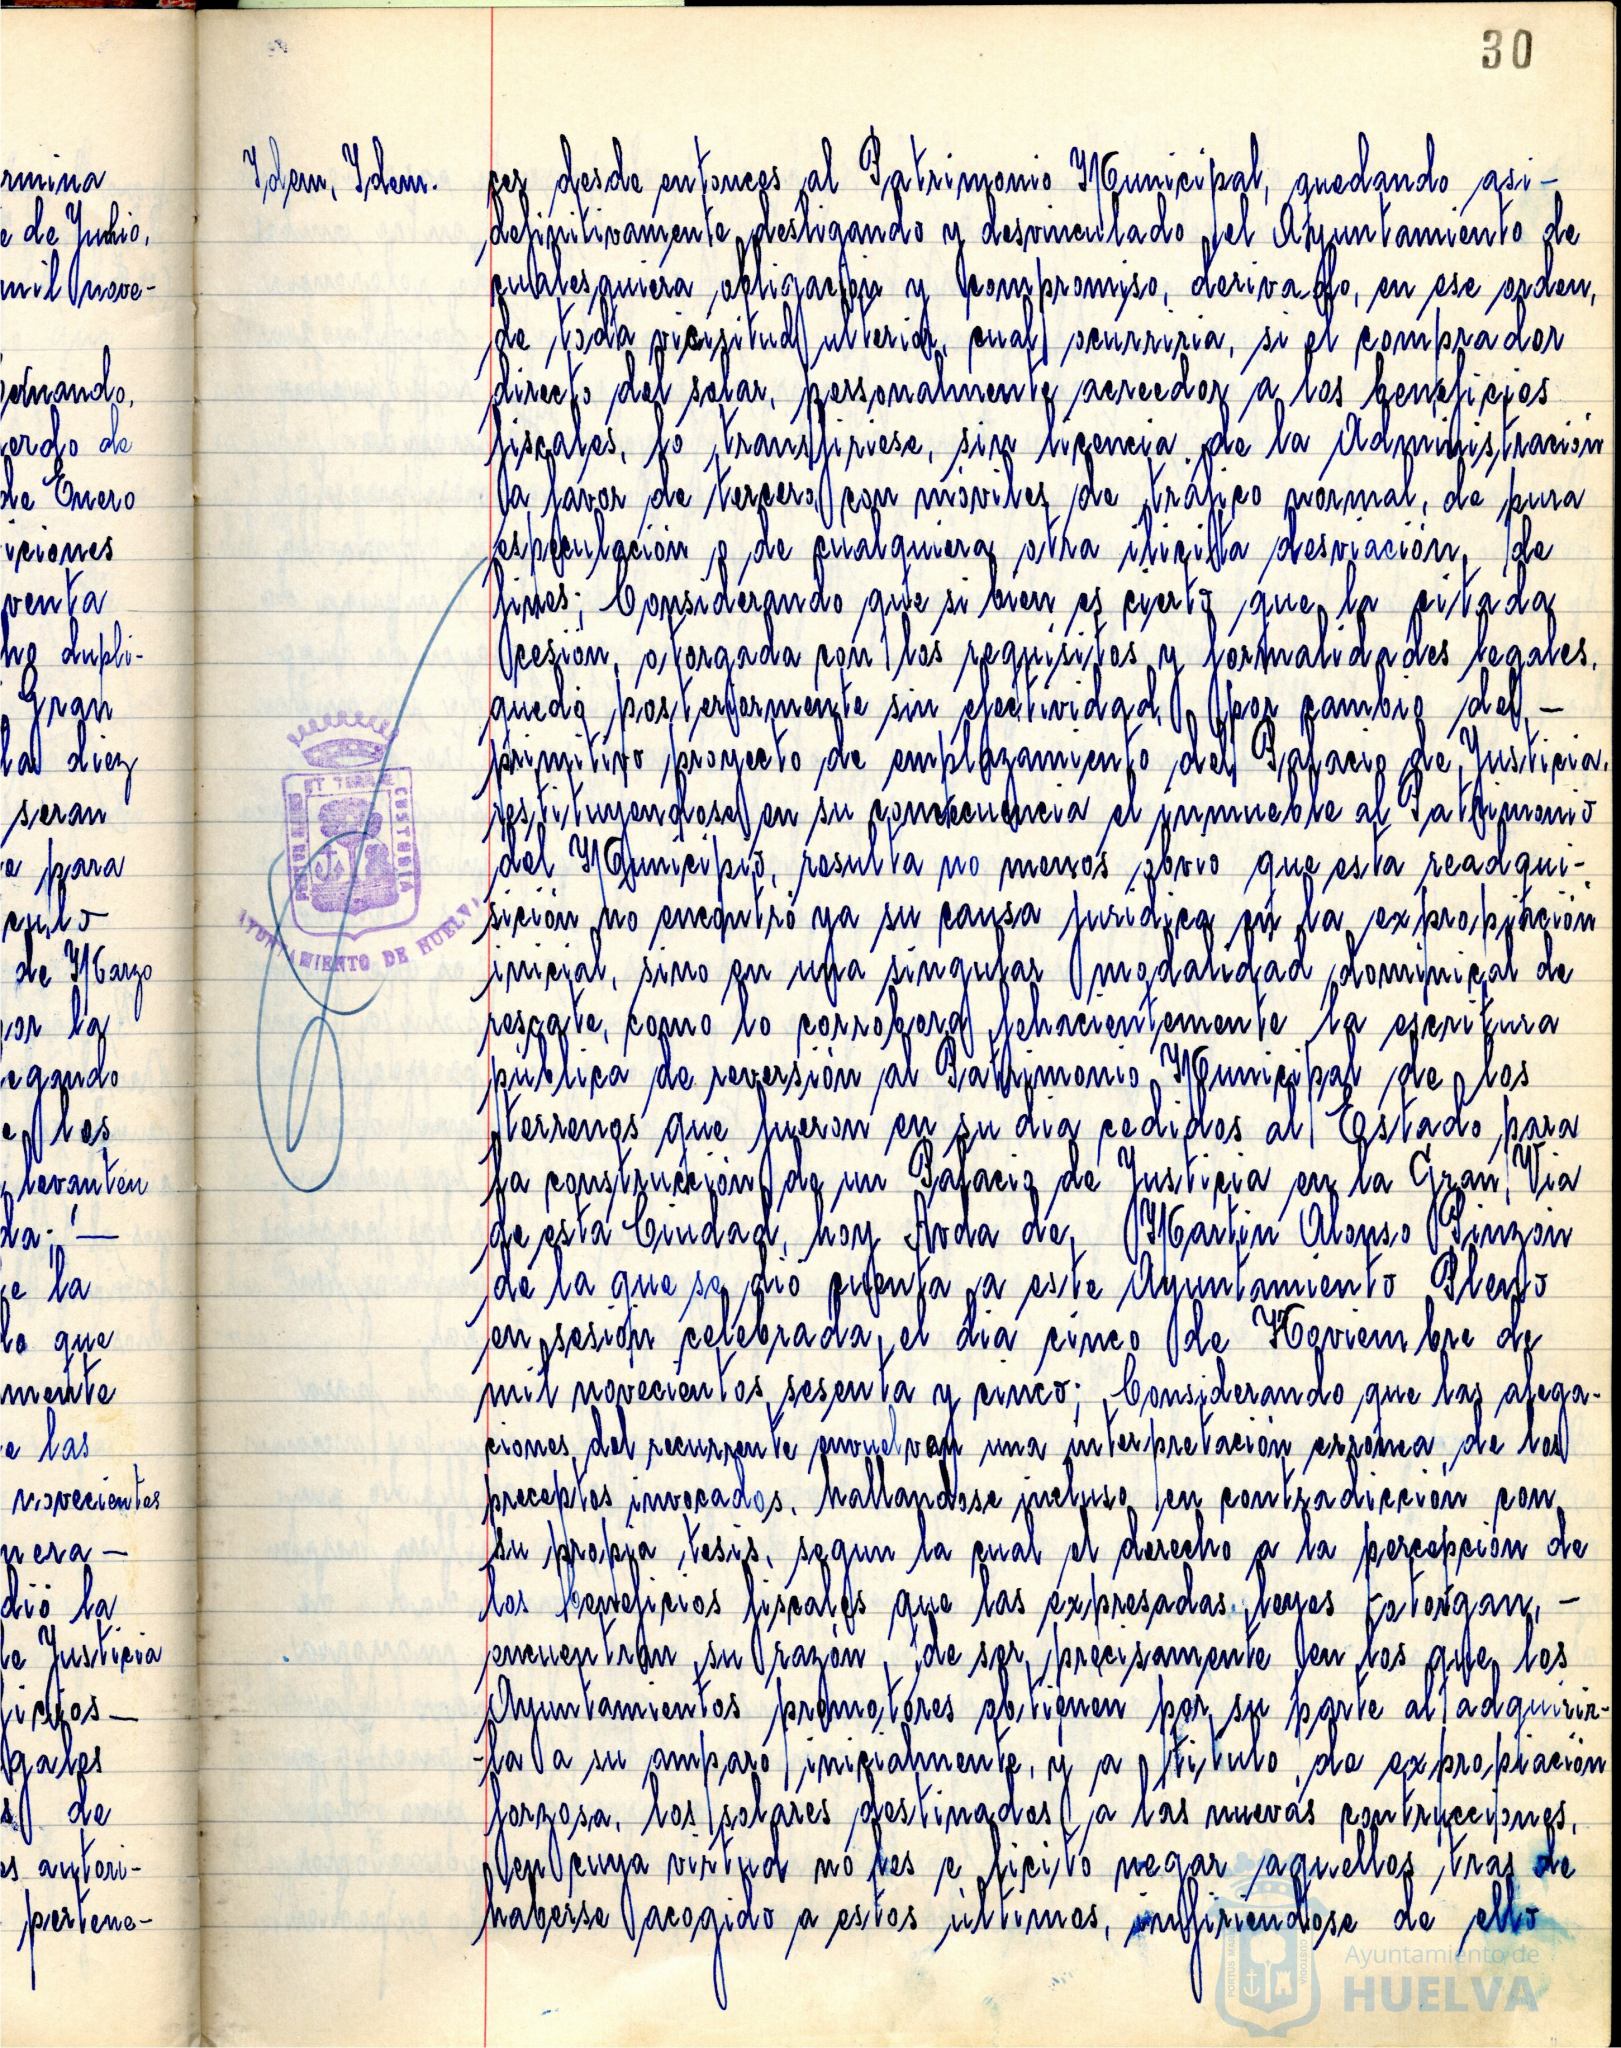 30
rmina
e de Junio,
mil nove-
ernando,
uerdo de
de Enero
iciones
venta
ho dupli-
Gran
la diez
seran
e para
culo
de Marzo
por la
egando
e los
levanten
da; —
e la
lo que
mente
e las
novecientos
nera —
dió la
de Justicia
ficios —
gales
de
es autori-
pertene-
Idem, Idem.
cer desde entonces al Patrimonio Municipal, quedando asi —
definitivamente desligando y desvinculado el Ayuntamiento de
cualesquiera obligación y compromiso, derivado, en ese orden,
de toda vicisitud ulterior, cual ocurriria, si el comprador
directo del solar, personalmente acreedor a los beneficios
fiscales, lo transfiriese, sin licencia de la Administración
a favor de tercero, con móviles de tráfico normal, de pura
especulación o de cualquiera otra ilicita desviación, de
fines; Considerando que si bien es cierto que la citada
cesión, otorgada con los requisitos y formalidades legales,
quedó posteriormente sin efectividad, por cambio del —
primitivo proyecto de emplazamiento del Palacio de Justicia,
restituyendose en su consecuencia el inmueble al Patrimonio
del Municipio, resulta no menos obvio que esta readqui-
sición no encontró ya su causa juridica en la expropiación
inicial, sino en una singular modalidad dominical de
rescate, como lo corrobora fehacientemente la escritura
pública de reversión al Patrimonio Municipal de los
terrenos que fueron en su dia cedidos al Estado para
la construcción de un Palacio de Justicia en la Gran Via
de esta Ciudad, hoy Avda de Martin Alonso Pinzón
de la que se dió cuenta a este Ayuntamiento Pleno
en sesión celebrada el dia cinco de Noviembre de
mil novecientos sesenta y cinco; Considerando que las alega-
ciones del recurrente envuelven una interpretación errónea de los
preceptos invocados, hallandose incluso en contradicción con
su propia tesis, segun la cual el derecho a la percepción de
los beneficios fiscales que las expresadas leyes otorgan, —
encuentran su razón de ser precisamente en los que los
Ayuntamientos promotores obtienen por su parte al adquirir-
la a su amparo inicialmente, y a titulo de expropiación
forzosa, los solares destinados a las nuevas contrucciones,
en cuya virtud no les e licito negar aquellos tras de
haberse acogido a estos últimos, infiriendose de ello
PORTUS MARIS ET TERRAE CUSTODIA
AYUNTAMIENTO DE HUELVA
Ayuntamiento de
HUELVA